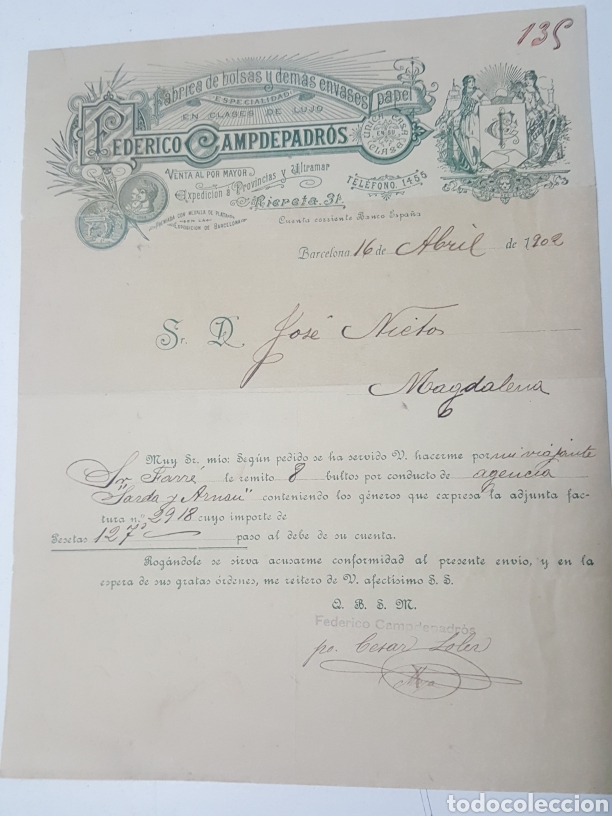 135
Fábrica de bolsas y demás envases papel
ESPECIALIDAD
EN CLASES DE LUJO
FEDERICO CAMPDEPADRÓS
VENTA AL POR MAYOR
Expedicion á Provincias y Ultramar
Riereta, 31
TELÉFONO 1455
PREMIADA CON MEDALLA DE PLATA
EN LA
EXPOSICION DE BARCELONA
Cuenta corriente Banco España
Barcelona 16 de Abril de 1902
Sr. D. José Nieto
Magdalena
Muy Sr. mío: Según pedido se ha servido V. hacerme por mi viajante
Sr Farré le remito 8 bultos por conducto de agencia
"Sarda y Arnau" conteniendo los géneros que expresa la adjunta fac-
tura n.º 2918 cuyo importe de
Pesetas 127 paso al debe de su cuenta.
Rogándole se sirva acusarme conformidad al presente envío, y en la
espera de sus gratas órdenes, me reitero de V. afectísimo S. S.
Q. B. S. M.
Federico Campdepadrós
po. Cesar Soler
todocoleccion